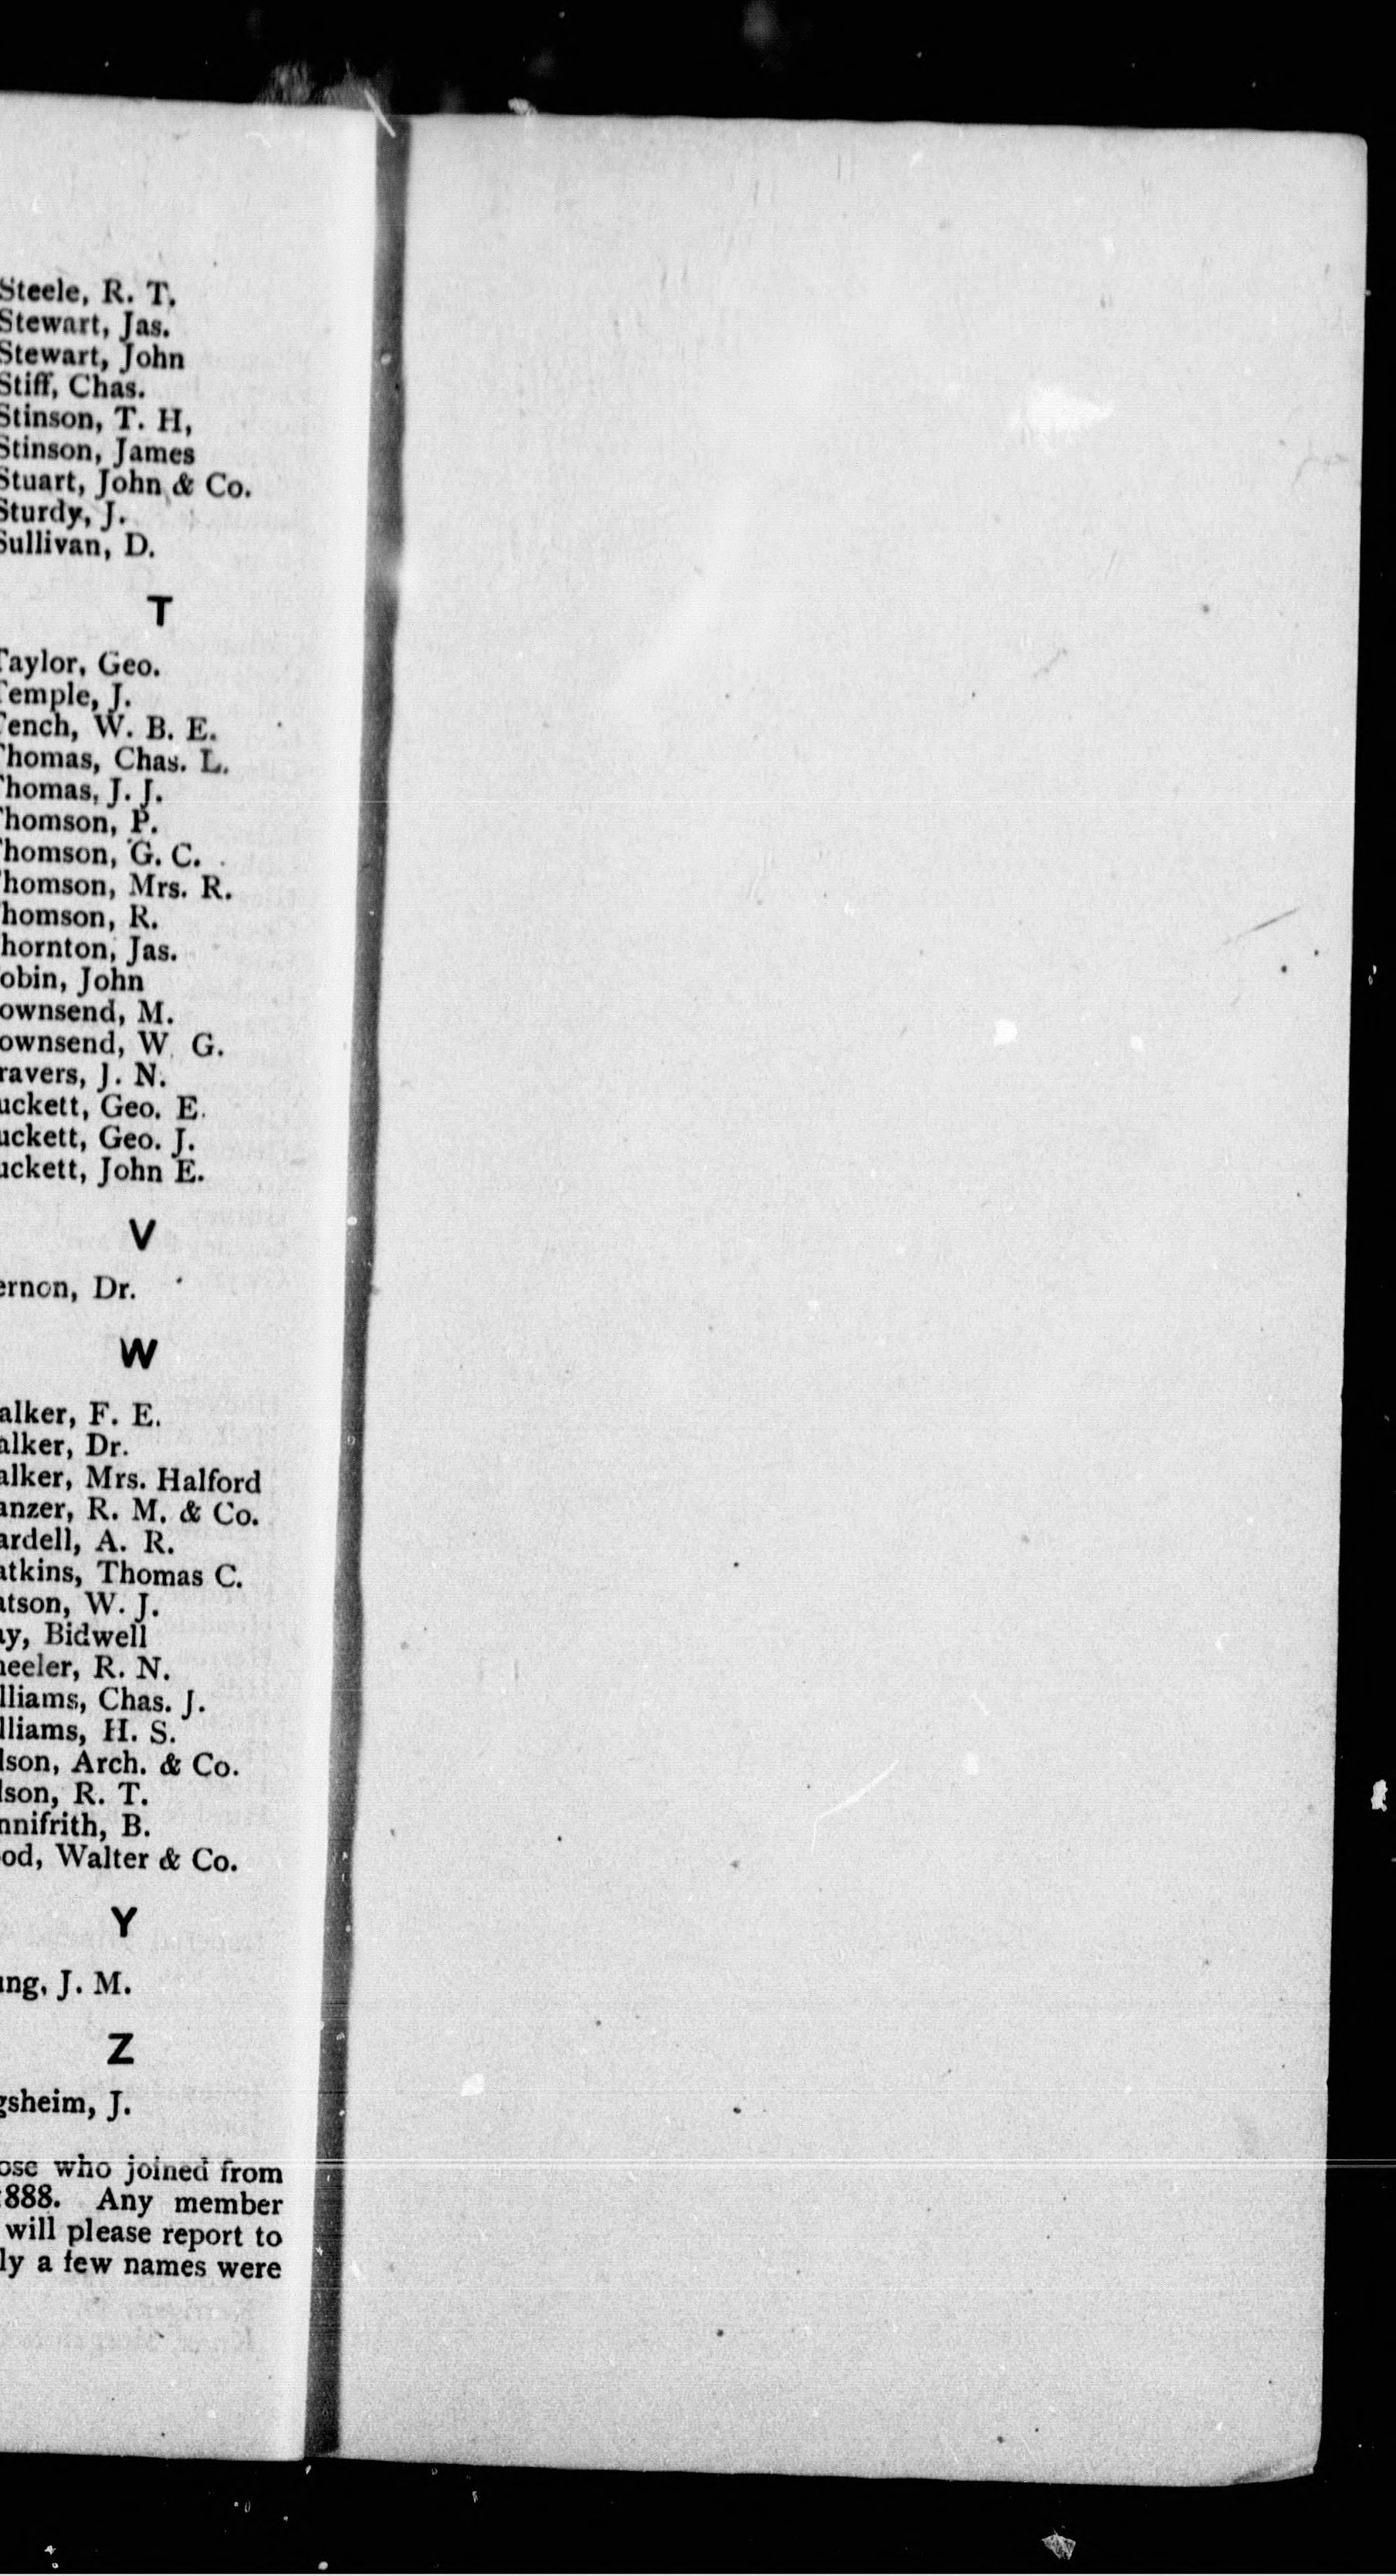 Steele, R. T.
Stewart, Jas.
Stewart, John
Stiff, Chas.
Stinson, T. H,
Stinson, James
Stuart, John & Co.
Sturdy, J.
Sullivan, D.
T
Taylor, Geo.
Temple, J.
Tench, W. B. E.
Thomas, Chas. L.
Thomas, J. J.
Thomson, P.
Thomson, G. C.
Thomson, Mrs. R.
homson, R.
hornton, Jas.
obin, John
ownsend, M.
ownsend, W. G.
ravers, J. N.
uckett, Geo. E.
uckett, Geo. J.
uckett, John E.
V
ernon, Dr.
W
alker, F. E.
alker, Dr.
alker, Mrs. Halford
anzer, R. M. & Co.
ardell, A. R.
atkins, Thomas C.
atson, W. J.
ay, Bidwell
heeler, R. N.
lliams, Chas. J.
lliams, H. S.
lson, Arch. & Co.
lson, R. T.
nnifrith, B.
od, Walter & Co.
Y
ung, J. M.
Z
gsheim, J.
ose who joined from
1888. Any member
will please report to
ly a few names were